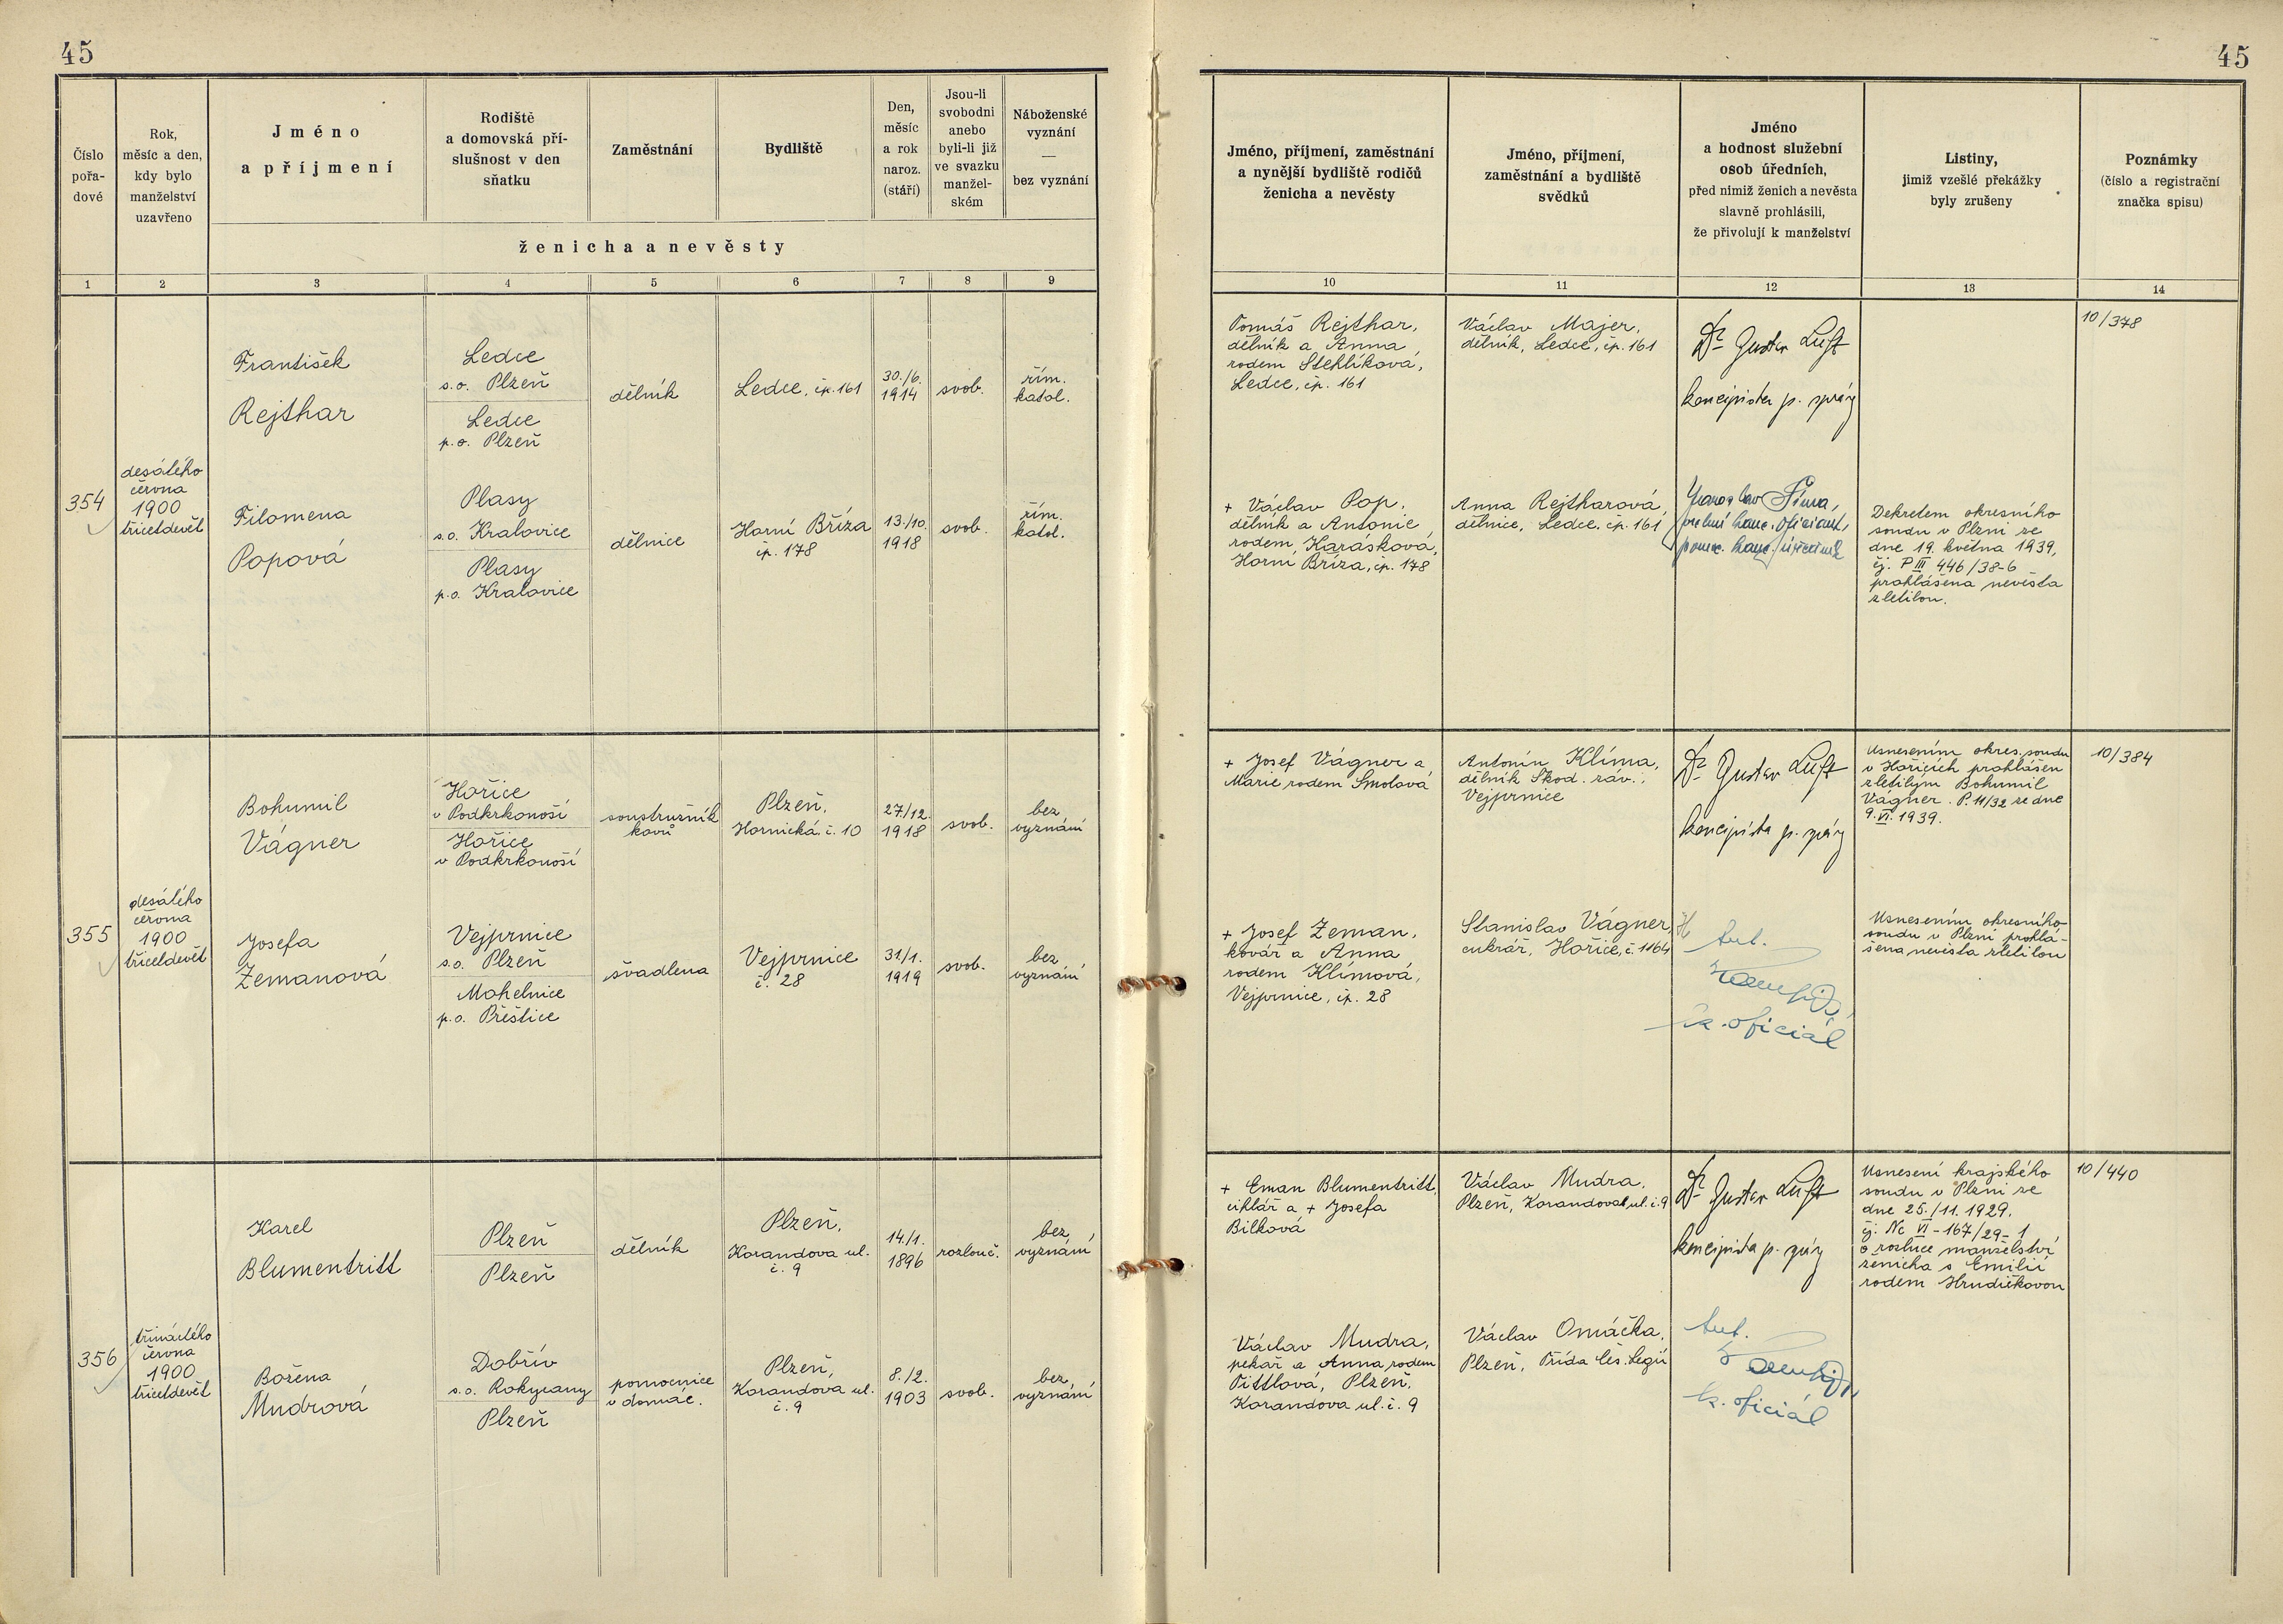 45
45
Číslo
pořa-
dové
Rok,
měsíc a den,
kdy bylo
manželství
uzavřeno
Jméno
a příjmení
Rodiště
a domovská pří-
slušnost v den
sňatku
Zaměstnání
Bydliště
Den,
měsíc
a rok
naroz.
(stáří)
Jsou-li
svobodni
anebo
byli-li již
ve svazku
manžel-
ském
Náboženské
vyznání
—
bez vyznání
ženicha a nevěsty
Jméno, příjmení, zaměstnání
a nynější bydliště rodičů
ženicha a nevěsty
Jméno, příjmení,
zaměstnání a bydliště
svědků
Jméno
a hodnost služební
osob úředních,
před nimiž ženich a nevěsta
slavně prohlásili,
že přivolují k manželství
Listiny,
jimiž vzešlé překážky
byly zrušeny
Poznámky
(číslo a registrační
značka spisu)
1 2 3 4 5 6 7 8 9 10 11 12 13 14
354
desátého
června
1900
třicetdevět
František
Rejthar
Ledce
s.o. Plzeň
Ledce
p.o. Plzeň
dělník
Ledce, čp. 161
30./6.
1914
svob.
řím.
katol.
Tomáš Rejthar,
dělník a Anna
rodem Stehlíková,
Ledce, čp. 161
Václav Majer,
dělník, Ledce, čp. 161
Dr Gustav Luft
koncipista p. správy
10/378
Filomena
Popová
Plasy
s.o. Kralovice
Plasy
p.o. Kralovice
dělnice
Horní Bříza
čp. 178
13./10.
1918
svob.
řím.
katol.
+ Václav Pop,
dělník a Antonie
rodem Karásková,
Horní Bříza, čp. 178
Anna Rejtharová,
dělnice, Ledce, čp. 161
Jaroslav
kanc. oficiant,
pomoc. kanc. úředník
Dekretem okresního
soudu v Plzni ze
dne 19. května 1939,
čj. P III 446/38-6
prohlášena nevěsta
zletilou.
355
desátého
června
1900
třicetdevět
Bohumil
Vágner
Hořice
v Podkrkonoší
Hořice
v Podkrkonoší
soustružník
kovů
Plzeň,
Hornická č. 10
27./12.
1918
svob.
bez
vyznání
+ Josef Vágner a
Marie rodem Smolová
Antonín Klíma,
dělník Škod. záv.,
Vejprnice
Dr Gustav Luft
koncipista p. správy
Usnesením okres. soudu
v Hořicích prohlášen
zletilým Bohumil
Vágner. P. 11/32 ze dne
9. VI. 1939.
10/384
Josefa
Zemanová
Vejprnice
s.o. Plzeň
Mohelnice
p.o. Přeštice
švadlena
Vejprnice
č. 28
31./1.
1919
svob.
bez
vyznání
+ Josef Zeman,
kovář a Anna
rodem Klímová,
Vejprnice, čp. 28
Stanislav Vágner,
cukrář, Hořice, č. 1164
Ant.
k. oficiál
Usnesením okresního
soudu v Plzni prohlá-
šena nevěsta zletilou
356
třináctého
června
1900
třicetdevět
Karel
Blumentritt
Plzeň
Plzeň
dělník
Plzeň,
Korandova ul.
č. 9
14./1.
1896
rozlouč.
bez
vyznání
+ Eman Blumentritt,
cihlář a + Josefa
Bilková
Václav Mudra,
Plzeň, Korandova ul. č. 9
Dr Gustav Luft
koncipista p. správy
Usnesení krajského
soudu v Plzni ze
dne 25./11. 1929,
čj. Nc VI-167/29-1
o rozluce manželství
ženicha s Emilií
rodem Hrudičkovou
10/440
Božena
Mudrová
Dobřív
s.o. Rokycany
Plzeň
pomocnice
v domác.
Plzeň,
Korandova ul.
č. 9
8./2.
1903
svob.
bez
vyznání
Václav Mudra,
pekař a Anna rodem
Tittlová, Plzeň,
Korandova ul. č. 9
Václav Omáčka,
Plzeň, Třída čes. legií
Ant.
k. oficiál